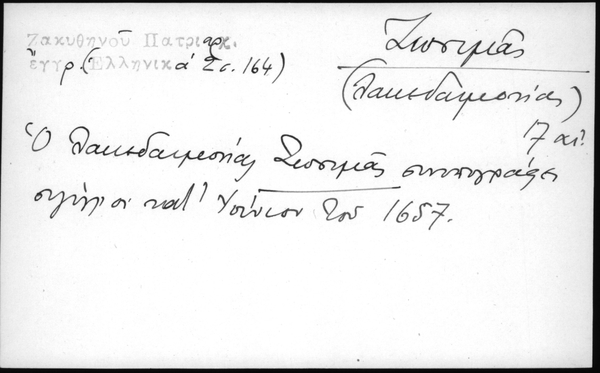 Ζακυθηνοῦ Πατριαρχ.
ἔγγρ. (Ἑλληνικά 2 σ. 164)
Ζωσιμᾶς
(Λακεδαιμονίας)
17 αἰ.
Ὁ Λακεδαιμονίας Ζωσιμᾶς συνυπογράφει
κατ' Ἰούνιον τοῦ 1657.